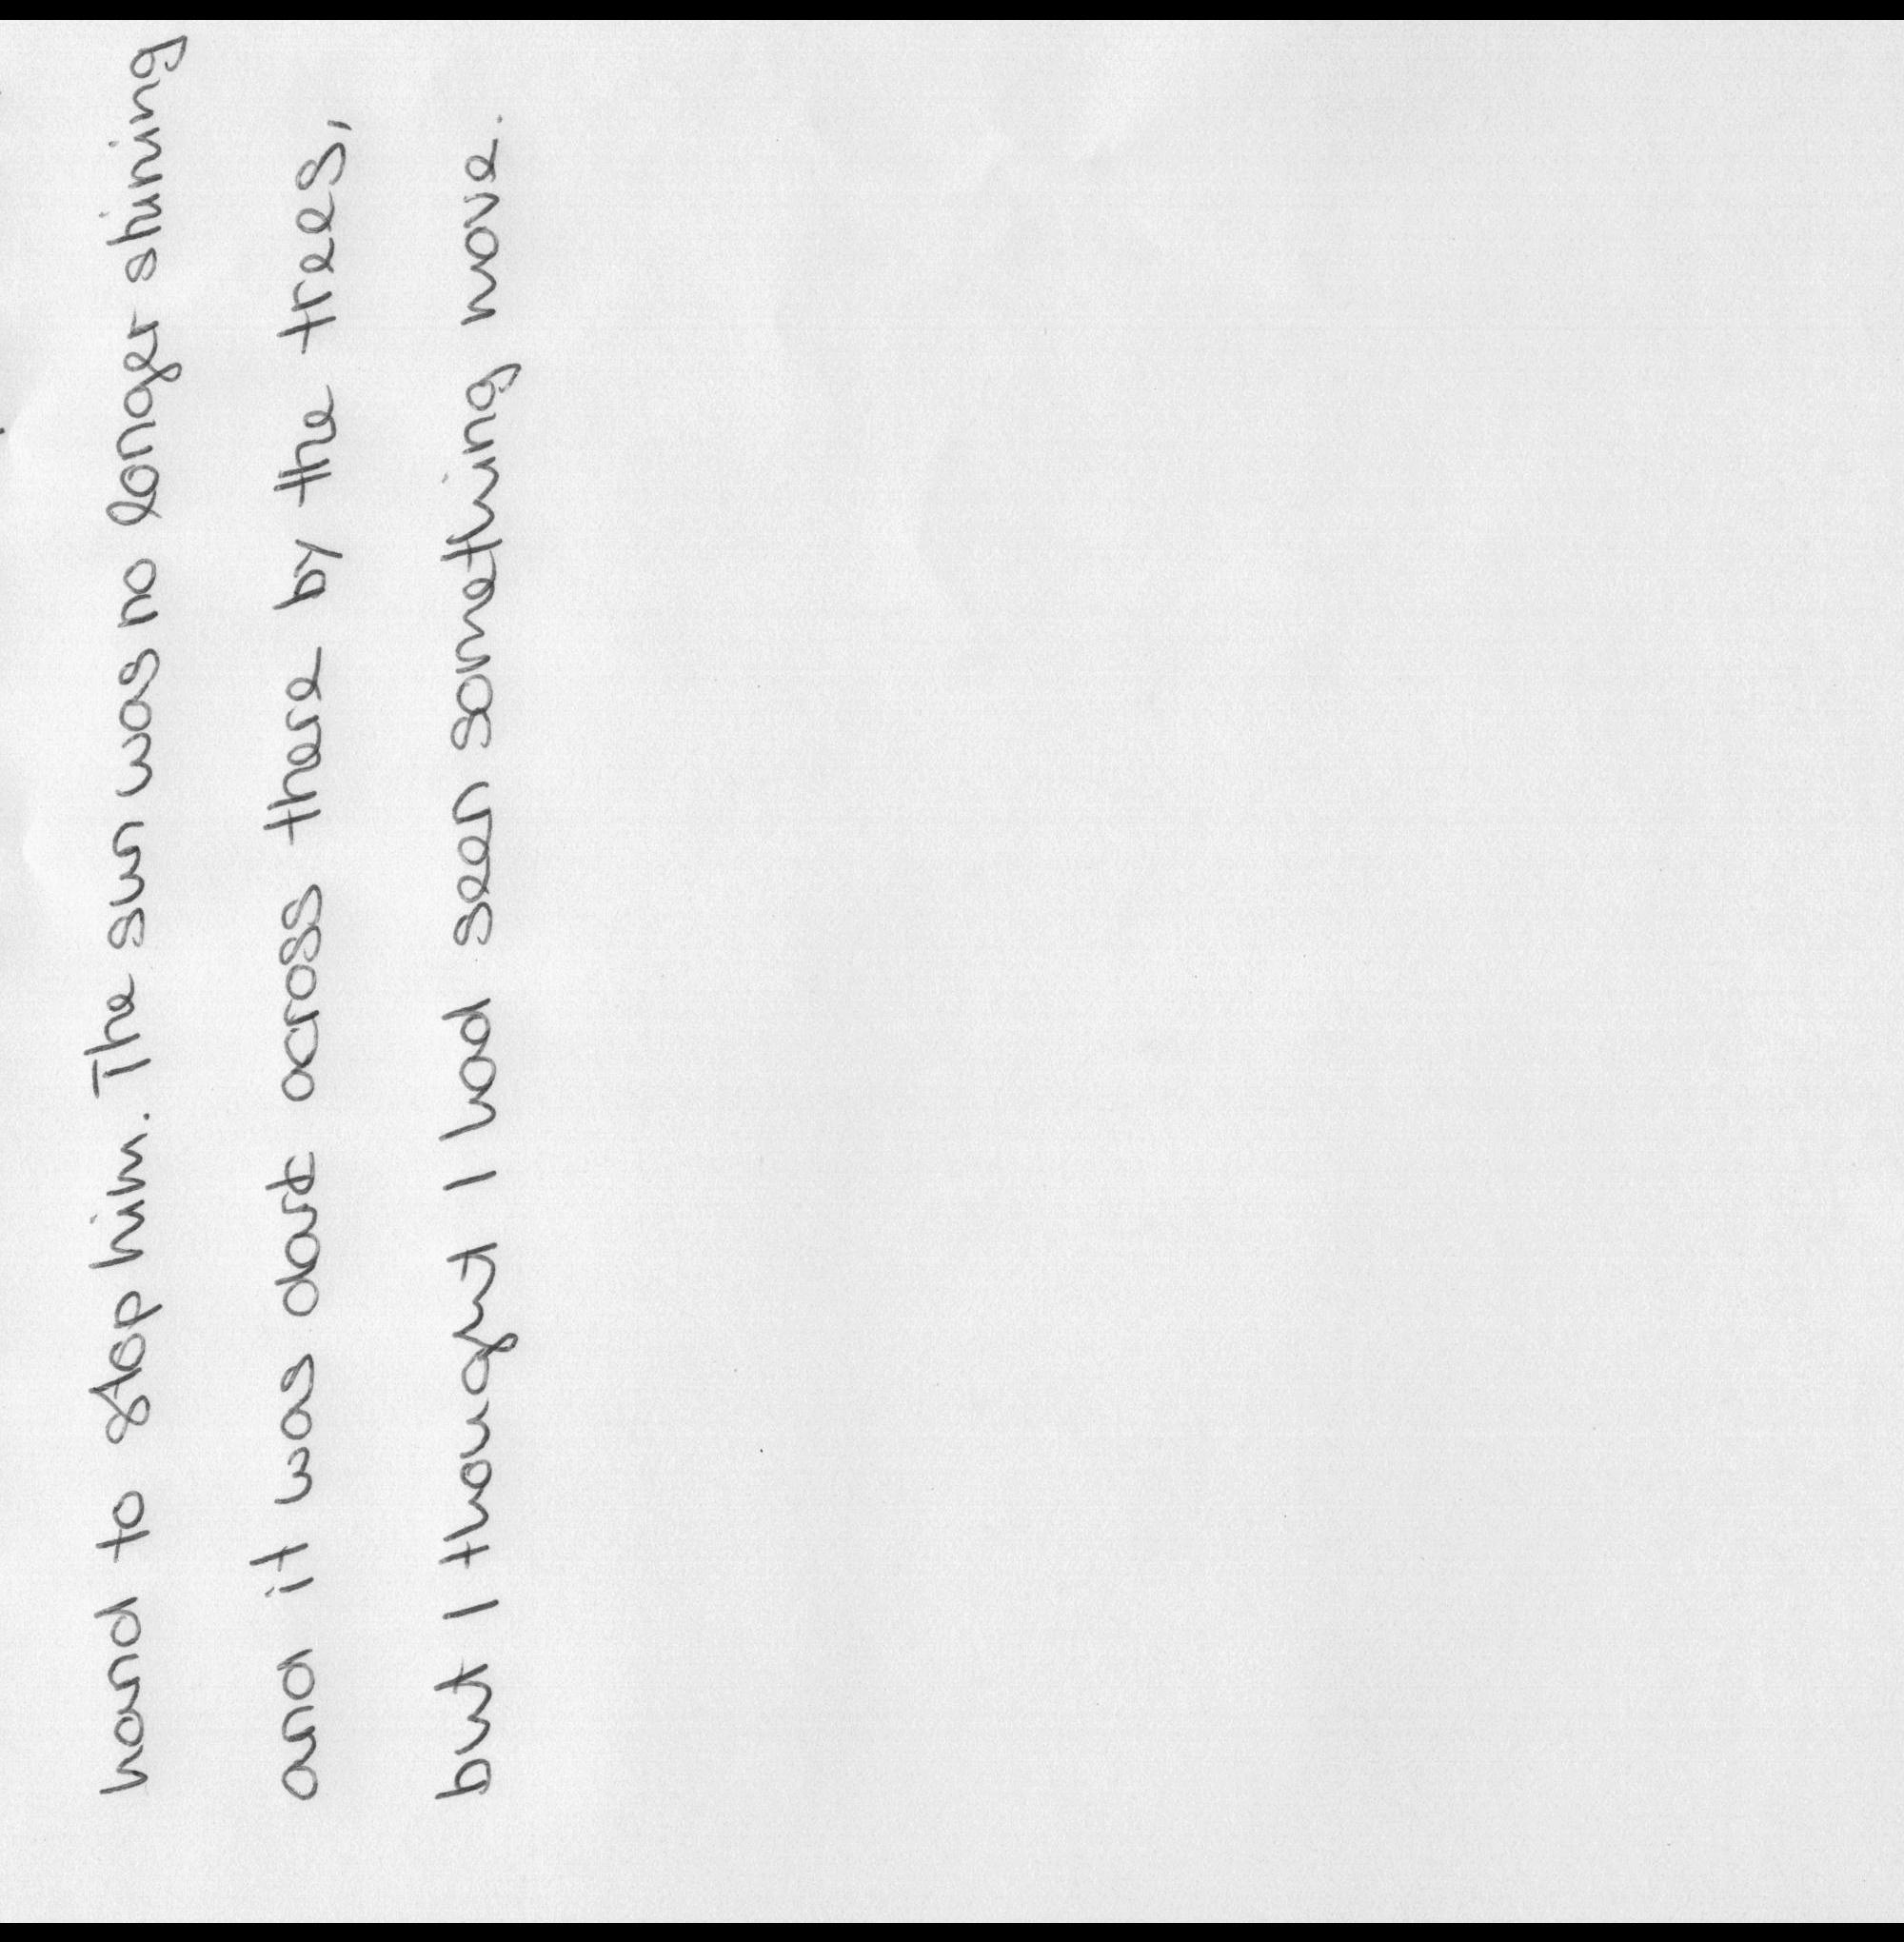 hand to stop him. The sun was no longer shining
and it was dark across there by the trees,
but I thought I had seen something move.